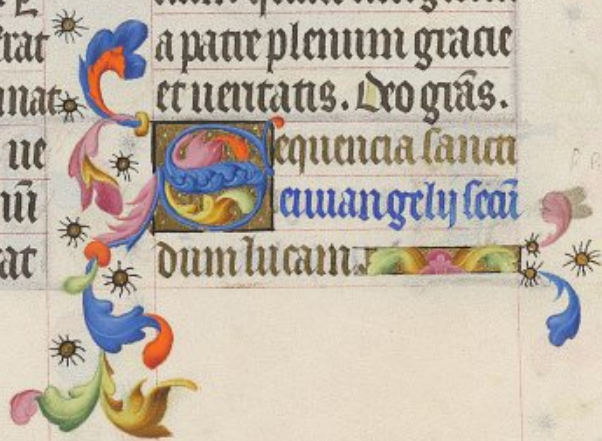 rat
a patre plenum gracie
nat
et ueritatis. Deo grãs.
ue
Sequencia sancti
nũ
euuangelij secũ
at
dum lucam.